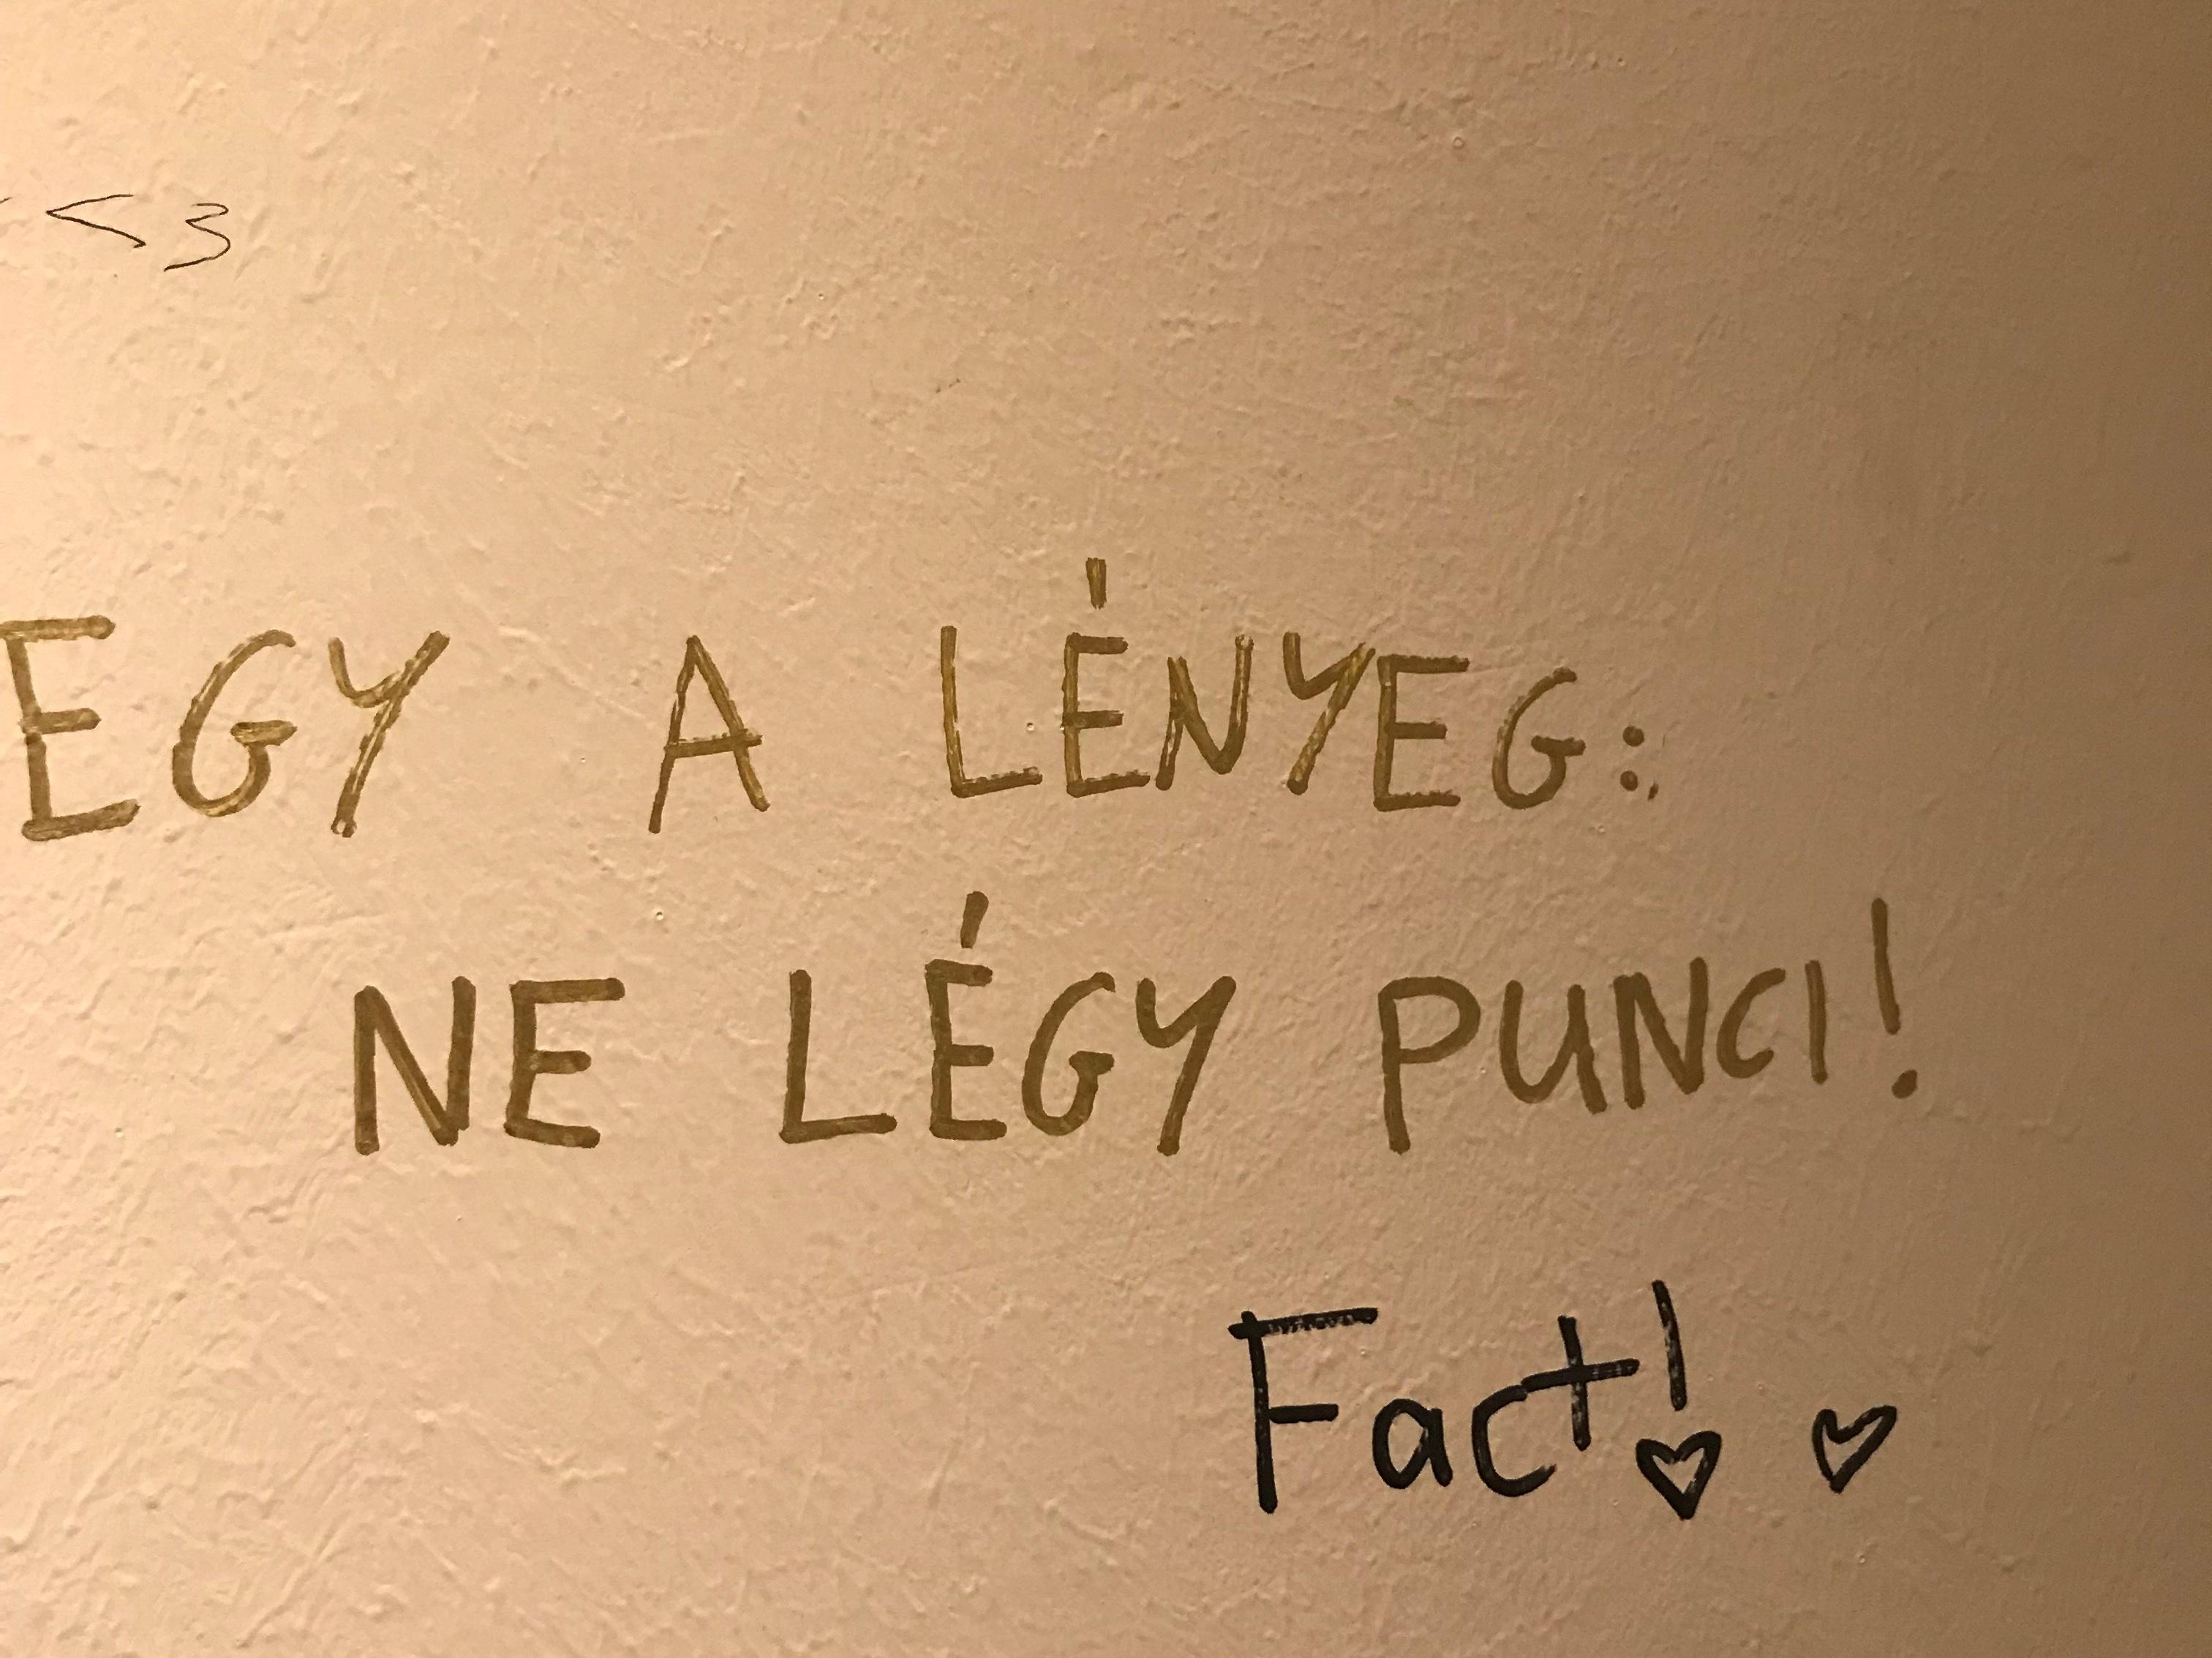 <3
EGY A LÉNYEG:
NE LÉGY PUNCI!
Fact! ♡ ♡